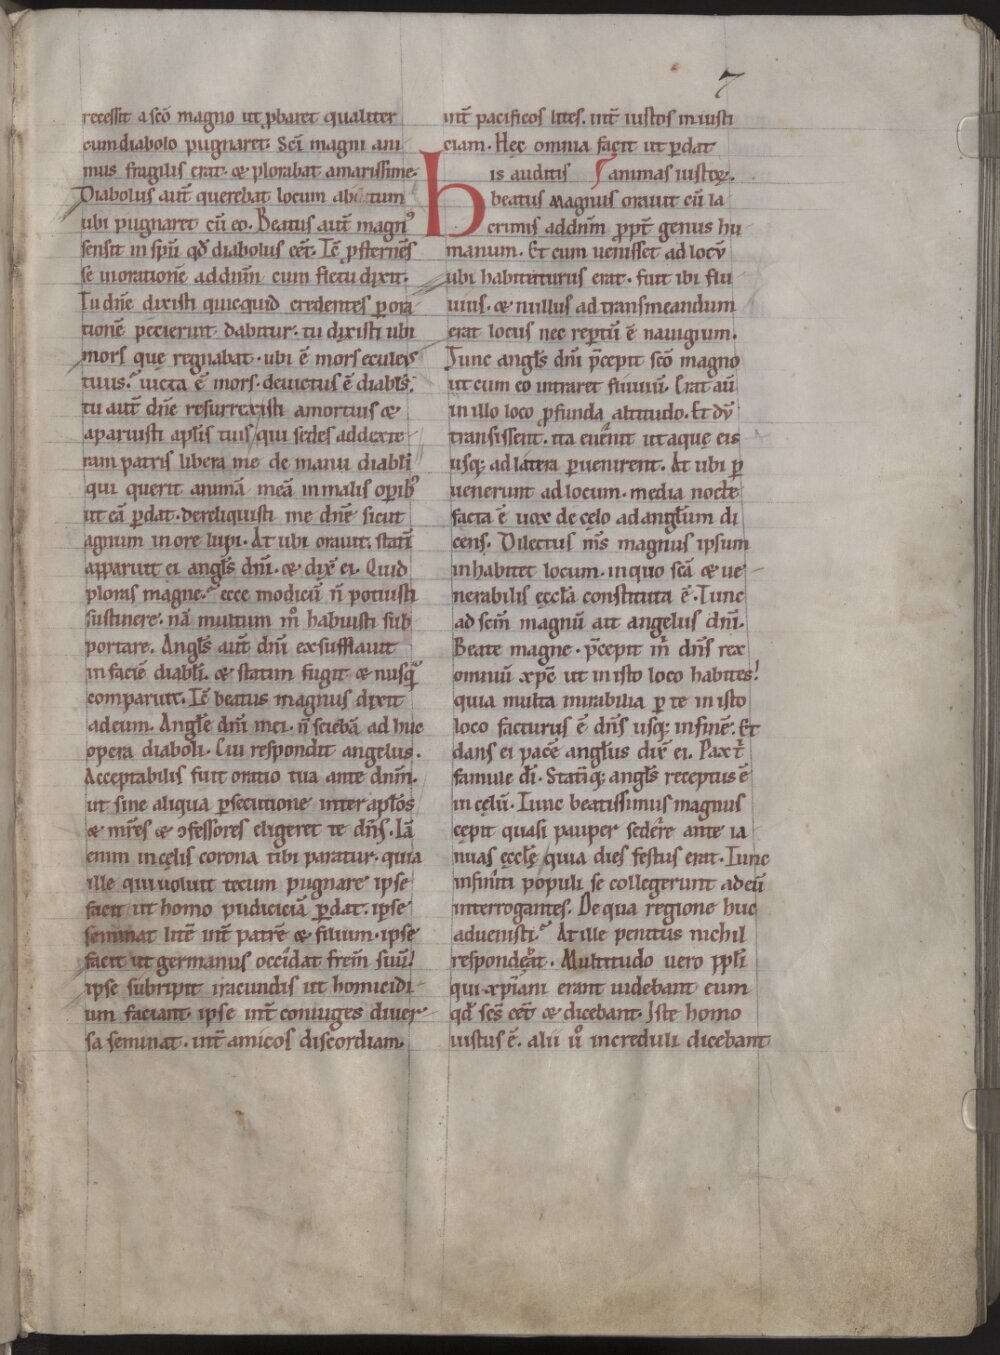 7
recessit a sc̄o magno ut p̱baret qualiter
cum diabolo pugnaret. Sc̄i magni ani
mus fragilis erat. & plorabat amarissime.
Diabolus aut̄ querebat locum ab tum
ubi pugnaret cū eo. Beatus aut̄ magn᷒
sensit in sp̄u qđ diabolus eēt. Tē ꝓsternēs
se in oratione ad dn̄m cum fletu dixit.
Tu dn̄e dixisti quicquid credentes ꝑ ora
tionē pecierint dabitur. tu dixisti ubi
mors que regnabat. ubi ē mors eculeis
tuus? uicta ē mors. deuictus ē diabl̄s.
tu aut̄ dn̄e resurrexisti a mortuis &
aparuisti apl̄is tuis qui sedes ad dexte
ram patris libera me de manu diabl̄i
qui querit animā meā in malis oꝑib᷒
ut eā ꝑdat. dereliquisti me dn̄e sicut
agnum in ore lupi. At ubi orauit. statī
apparuit ei angl̄s dn̄i. & dix̄ ei. Quid
ploras magne? ecce modicū n̄ potuisti
sustinere. nā multum m̊ habuisti sub
portare. Angl̄s aut̄ dn̄i exsufflauit
in faciē diabl̄i. & statim fugit & nusq̄
comparuit. Tē beatus magnus dixit
ad eum. Angl̄e dn̄i mei. n̄ sciebā ad huc
opera diaboli. Cui respondit angelus.
Acceptabilis fuit oratio tua ante dn̄m.
ut sine aliqua ꝑsecutione inter apl̄os
& mr̄es & ɔfessores eligeret te dn̄s. Iā
enim in cęlis corona tibi paratur. quia
ille qui uoluit tecum pugnare ipse
facit ut homo pudiciciā ꝑdat. ipse
seminat litē int̄ patrē & filium. ipse
facit ut germanus occidat frem̄ suū.
ipse subripit iracundis ut homicidi
um faciant. ipse int̄ coniuges diuer
sa seminat. int̄ amicos discordiam.
int̄ pacificos lites. int̄ iustos iniusti
ciam. Hęc omnia facit ut ꝑdat
his auditis animas iustoꝝ.
beatus Magnus orauit cū la
crimis ad dn̄m ꝓpt̄ genus hu
manum. Et cum uenisset ad locū
ubi habitaturus erat. fuit ibi flu
uius. & nullus ad transmeandum
erat locus nec reptū ē nauigium.
Tunc angl̄s dn̄i p̄cepit sc̄o magno
ut cum eo intraret fluuiū. Erat aū
in illo loco ꝓfunda altitudo. Et dū
transissent. ita euenit ut aquę eis
usq; ad latera ꝑuenirent. At ubi ꝑ
uenerunt ad locum. media nocte
facta ē uox de cęlo ad angl̄um di
cens. Dilectus m̄s magnus ipsum
inhabitet locum. in quo sc̄a & ue
nerabilis eccl̄a constituta ē. Tunc
ad scm̄ magnū ait angelus dn̄i.
Beate magne. p̄cepit m̄ dn̄s rex
omniū xp̄c ut in isto loco habites.
quia multa mirabilia ꝑ te in isto
loco facturus ē dn̄s usq; in finē. Et
dans ei pacē angelus dix̄ ei. Pax t̄
famule dī. Statīq; angl̄s receptus ē
in cęlū. Tunc beatissimus magnus
cępit quasi pauper sedere ante ia
nuas ęccl̄ę quia dies festus erat. Tunc
infiniti populi se collegerunt ad eū
interrogantes. De qua regione huc
aduenisti? At ille penitus nichil
respondebat. Multitudo uero ppl̄i
qui xp̄iani erant uidebant eum
qđ sc̄s eēt & dicebant. Iste homo
iustus ē. alii ů increduli dicebant